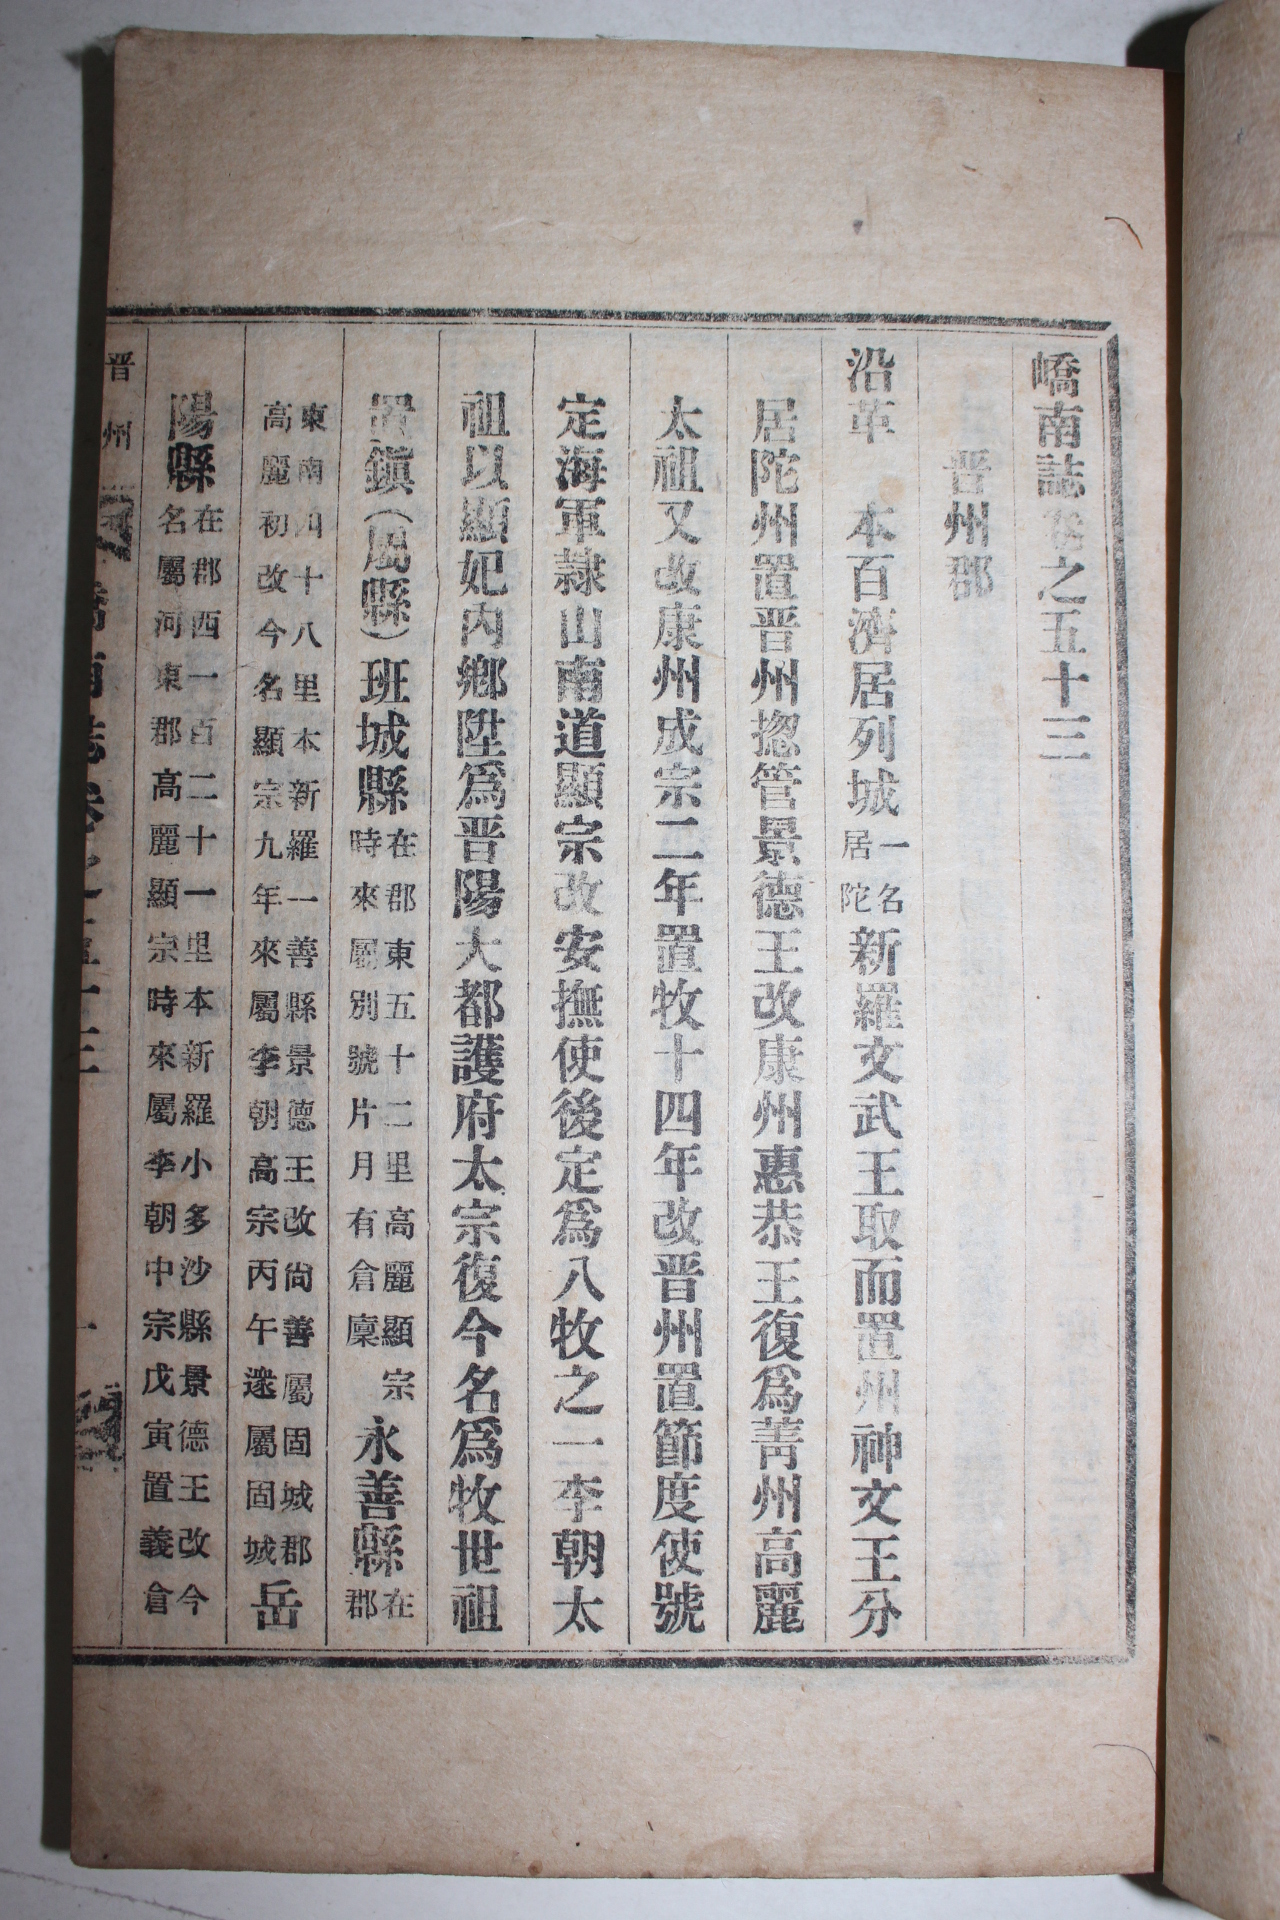 嶠南誌卷之五十三
晋州郡
沿革 本百濟居列城一名居陀新羅文武王取而置州神文王分
居陀州置晋州摠管景德王改康州惠恭王復爲菁州高麗
太祖又改康州成宗二年置牧十四年改晋州置節度使號
定海軍隷山南道顯宗改安撫使後定爲八牧之一李朝太
祖以顯妃內鄕陞爲晋陽大都護府太宗復今名爲牧世祖
置鎭(屬縣)班城縣在郡東五十二里高麗顯宗時來屬別號片月有倉廩永善縣在郡
東南四十八里本新羅一善縣景德王改尙善屬固城郡高麗初改今名顯宗九年來屬李朝高宗丙午還屬固城岳
陽縣在郡西一百二十一里本新羅小多沙縣景德王改今名屬河東郡高麗顯宗時來屬李朝中宗戊寅置義倉
晋州 嶠南誌卷之五十三 一